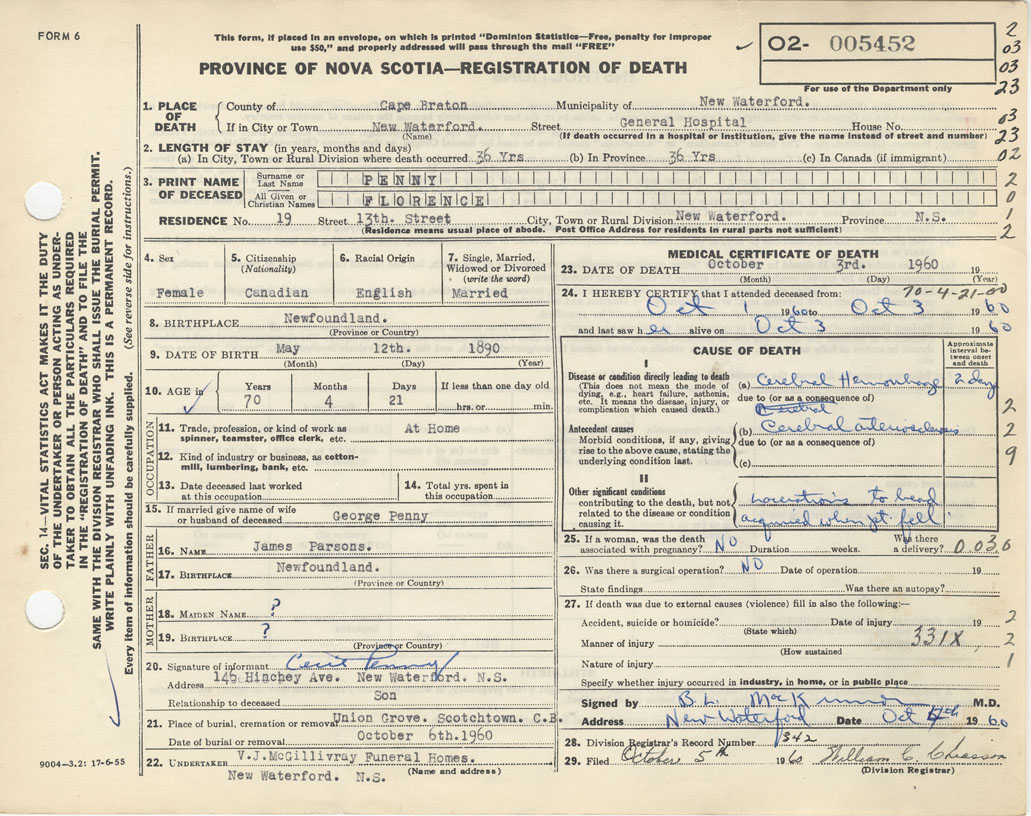 FORM 6
This form, if placed in an envelope, on which is printed "Dominion Statistics—Free, penalty for improper
use $50," and properly addressed will pass through the mail "FREE"
PROVINCE OF NOVA SCOTIA—REGISTRATION OF DEATH
O2- 005452
For use of the Department only
2
03
03
23
1. PLACE OF DEATH
County of Cape Breton Municipality of New Waterford.
If in City or Town New Waterford. Street General Hospital House No.
(Name) (If death occurred in a hospital or institution, give the name instead of street and number)
03
23
02
2. LENGTH OF STAY (in years, months and days)
(a) In City, Town or Rural Division where death occurred 36 Yrs (b) In Province 36 Yrs (c) In Canada (if immigrant)
3. PRINT NAME OF DECEASED
Surname or Last Name PENNY
All Given or Christian Names FLORENCE
RESIDENCE No. 19 Street 13th. Street City, Town or Rural Division New Waterford. Province N.S.
(Residence means usual place of abode. Post Office Address for residents in rural parts not sufficient)
2
0
1
2
SEC. 14—VITAL STATISTICS ACT MAKES IT THE DUTY
OF THE UNDERTAKER OR PERSON ACTING AS UNDER-
TAKER TO OBTAIN ALL THE PARTICULARS REQUIRED
IN THE "REGISTRATION OF DEATH" AND TO FILE THE
SAME WITH THE DIVISION REGISTRAR WHO SHALL ISSUE THE BURIAL PERMIT.
WRITE PLAINLY WITH UNFADING INK. THIS IS A PERMANENT RECORD.
Every item of information should be carefully supplied. (See reverse side for instructions.)
4. Sex
Female
5. Citizenship
(Nationality)
Canadian
6. Racial Origin
English
7. Single, Married,
Widowed or Divorced
(write the word)
Married
8. BIRTHPLACE Newfoundland.
(Province or Country)
9. DATE OF BIRTH May 12th. 1890
(Month) (Day) (Year)
10. AGE in
Years Months Days If less than one day old
70 4 21 hrs. or min.
OCCUPATION
11. Trade, profession, or kind of work as
spinner, teamster, office clerk, etc. At Home
12. Kind of industry or business, as cotton-
mill, lumbering, bank, etc.
13. Date deceased last worked
at this occupation
14. Total yrs. spent in
this occupation
15. If married give name of wife
or husband of deceased George Penny
FATHER
16. NAME James Parsons.
17. BIRTHPLACE Newfoundland.
(Province or Country)
MOTHER
18. MAIDEN NAME ?
19. BIRTHPLACE ?
(Province or Country)
20. Signature of informant Cecil Penny
Address 146 Hinchey Ave. New Waterford. N.S.
Relationship to deceased Son
21. Place of burial, cremation or removal Union Grove. Scotchtown. C.B.
Date of burial or removal October 6th.1960
22. UNDERTAKER V.J.McGillivray Funeral Homes.
New Waterford. N.S. (Name and address)
9004—3.2: 17-6-55
MEDICAL CERTIFICATE OF DEATH
23. DATE OF DEATH October 3rd. 1960 19
(Month) (Day) (Year)
70-4-21-00
24. I HEREBY CERTIFY that I attended deceased from:
Oct 1 1960 to Oct 3 1960
and last saw her alive on Oct 3 1960
CAUSE OF DEATH
Approximate
interval be-
tween onset
and death
I
Disease or condition directly leading to death
(This does not mean the mode of
dying, e.g., heart failure, asthenia,
etc. It means the disease, injury, or
complication which caused death.)
(a) Cerebral Hemorrhage 2 days
due to (or as a consequence of)
Antecedent causes
Morbid conditions, if any, giving
rise to the above cause, stating the
underlying condition last.
(b) Cerebral arteriosclerosis
due to (or as a consequence of)
(c)
II
Other significant conditions
contributing to the death, but not
related to the disease or condition
causing it.
lacerations to head
acquired when pt. fell
2
2
9
25. If a woman, was the death
associated with pregnancy? NO Duration weeks. Was there
a delivery? 0.036
26. Was there a surgical operation? NO Date of operation 19
State findings Was there an autopsy?
27. If death was due to external causes (violence) fill in also the following:—
Accident, suicide or homicide? Date of injury 19
(State which)
Manner of injury 331X
(How sustained)
Nature of injury
2
2
1
Specify whether injury occurred in industry, in home, or in public place
Signed by B.L. M.D.
Address New Waterford Date Oct 4th 1960
28. Division Registrar's Record Number 342
29. Filed October 5th 1960 William C. Chiasson
(Division Registrar)